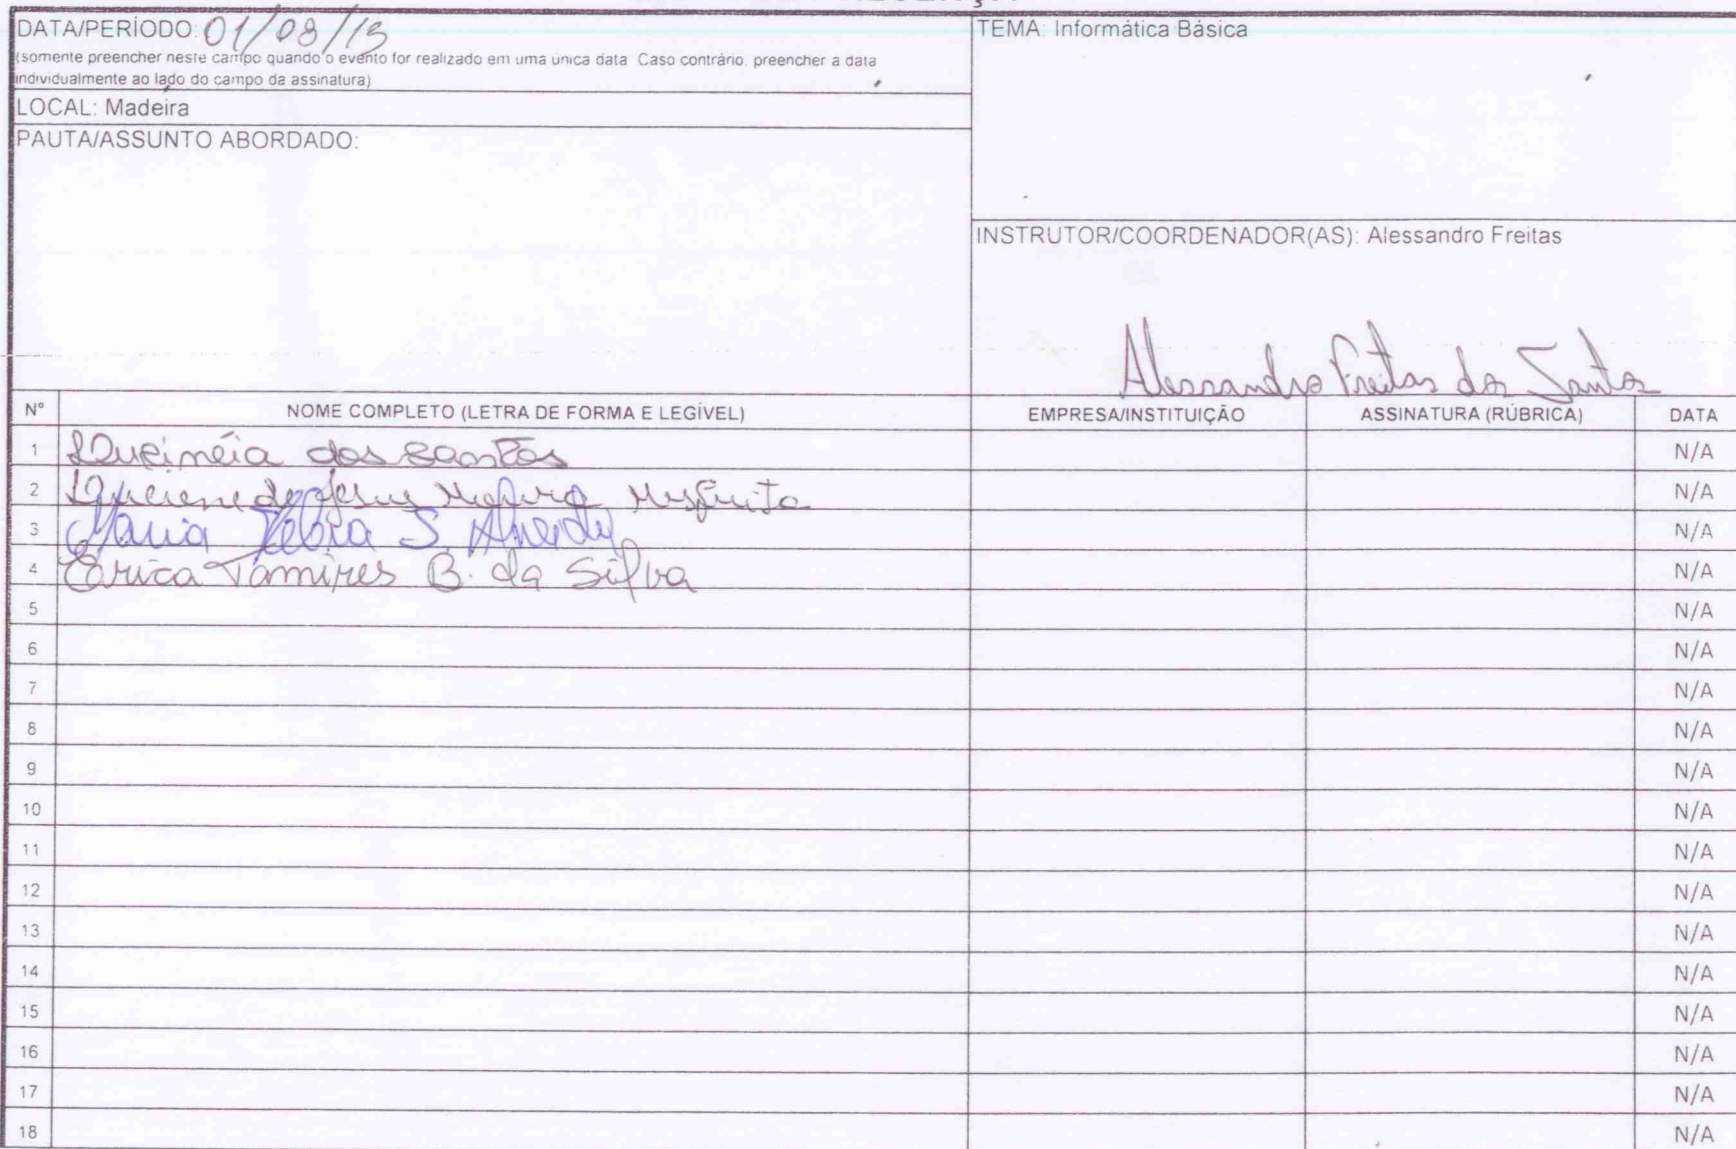 DATA/PERÍODO: 01/08/13
(somente preencher neste campo quando o evento for realizado em uma única data. Caso contrário, preencher a data
individualmente ao lado do campo da assinatura)
LOCAL: Madeira
PAUTA/ASSUNTO ABORDADO:
TEMA: Informática Básica
INSTRUTOR/COORDENADOR(AS): Alessandro Freitas
Alessandro Freitas dos Santos
Nº NOME COMPLETO (LETRA DE FORMA E LEGÍVEL) EMPRESA/INSTITUIÇÃO ASSINATURA (RÚBRICA) DATA
1 dos Santos N/A
2 de Jesus N/A
3 Maria S. N/A
4 Erica Tamires B. da Silva N/A
5 N/A
6 N/A
7 N/A
8 N/A
9 N/A
10 N/A
11 N/A
12 N/A
13 N/A
14 N/A
15 N/A
16 N/A
17 N/A
18 N/A